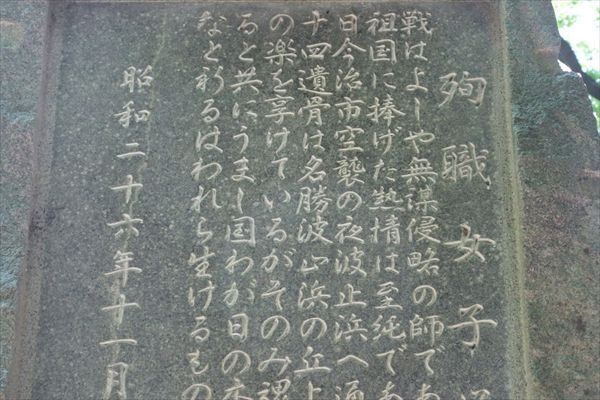 殉職女子
戦はよしや無謀侵略の師であ
祖国に捧げた熱情は至純であ
日今治市空襲の夜波止浜へ
十四遺骨は名勝波止浜の丘上
の楽を享けているがそのみ
ると共にうまし国わが日の本
なと祈るはわれら生けるもの
昭和二十六年十一月